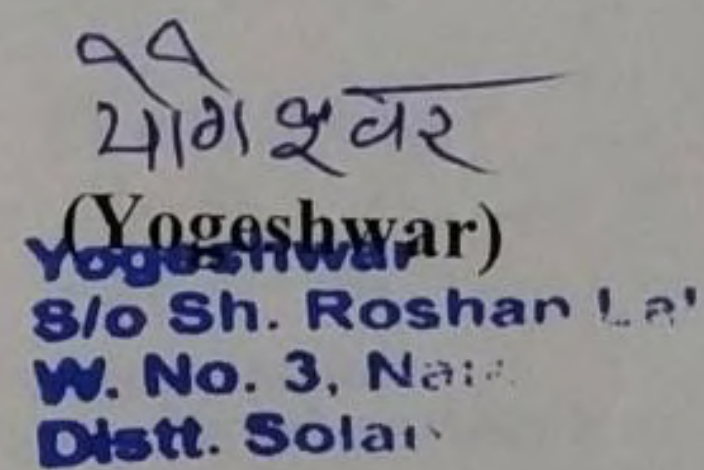 योगेश्वर
(Yogeshwar)
Yogeshwar
S/o Sh. Roshan Lal
W. No. 3,
Distt. Solan